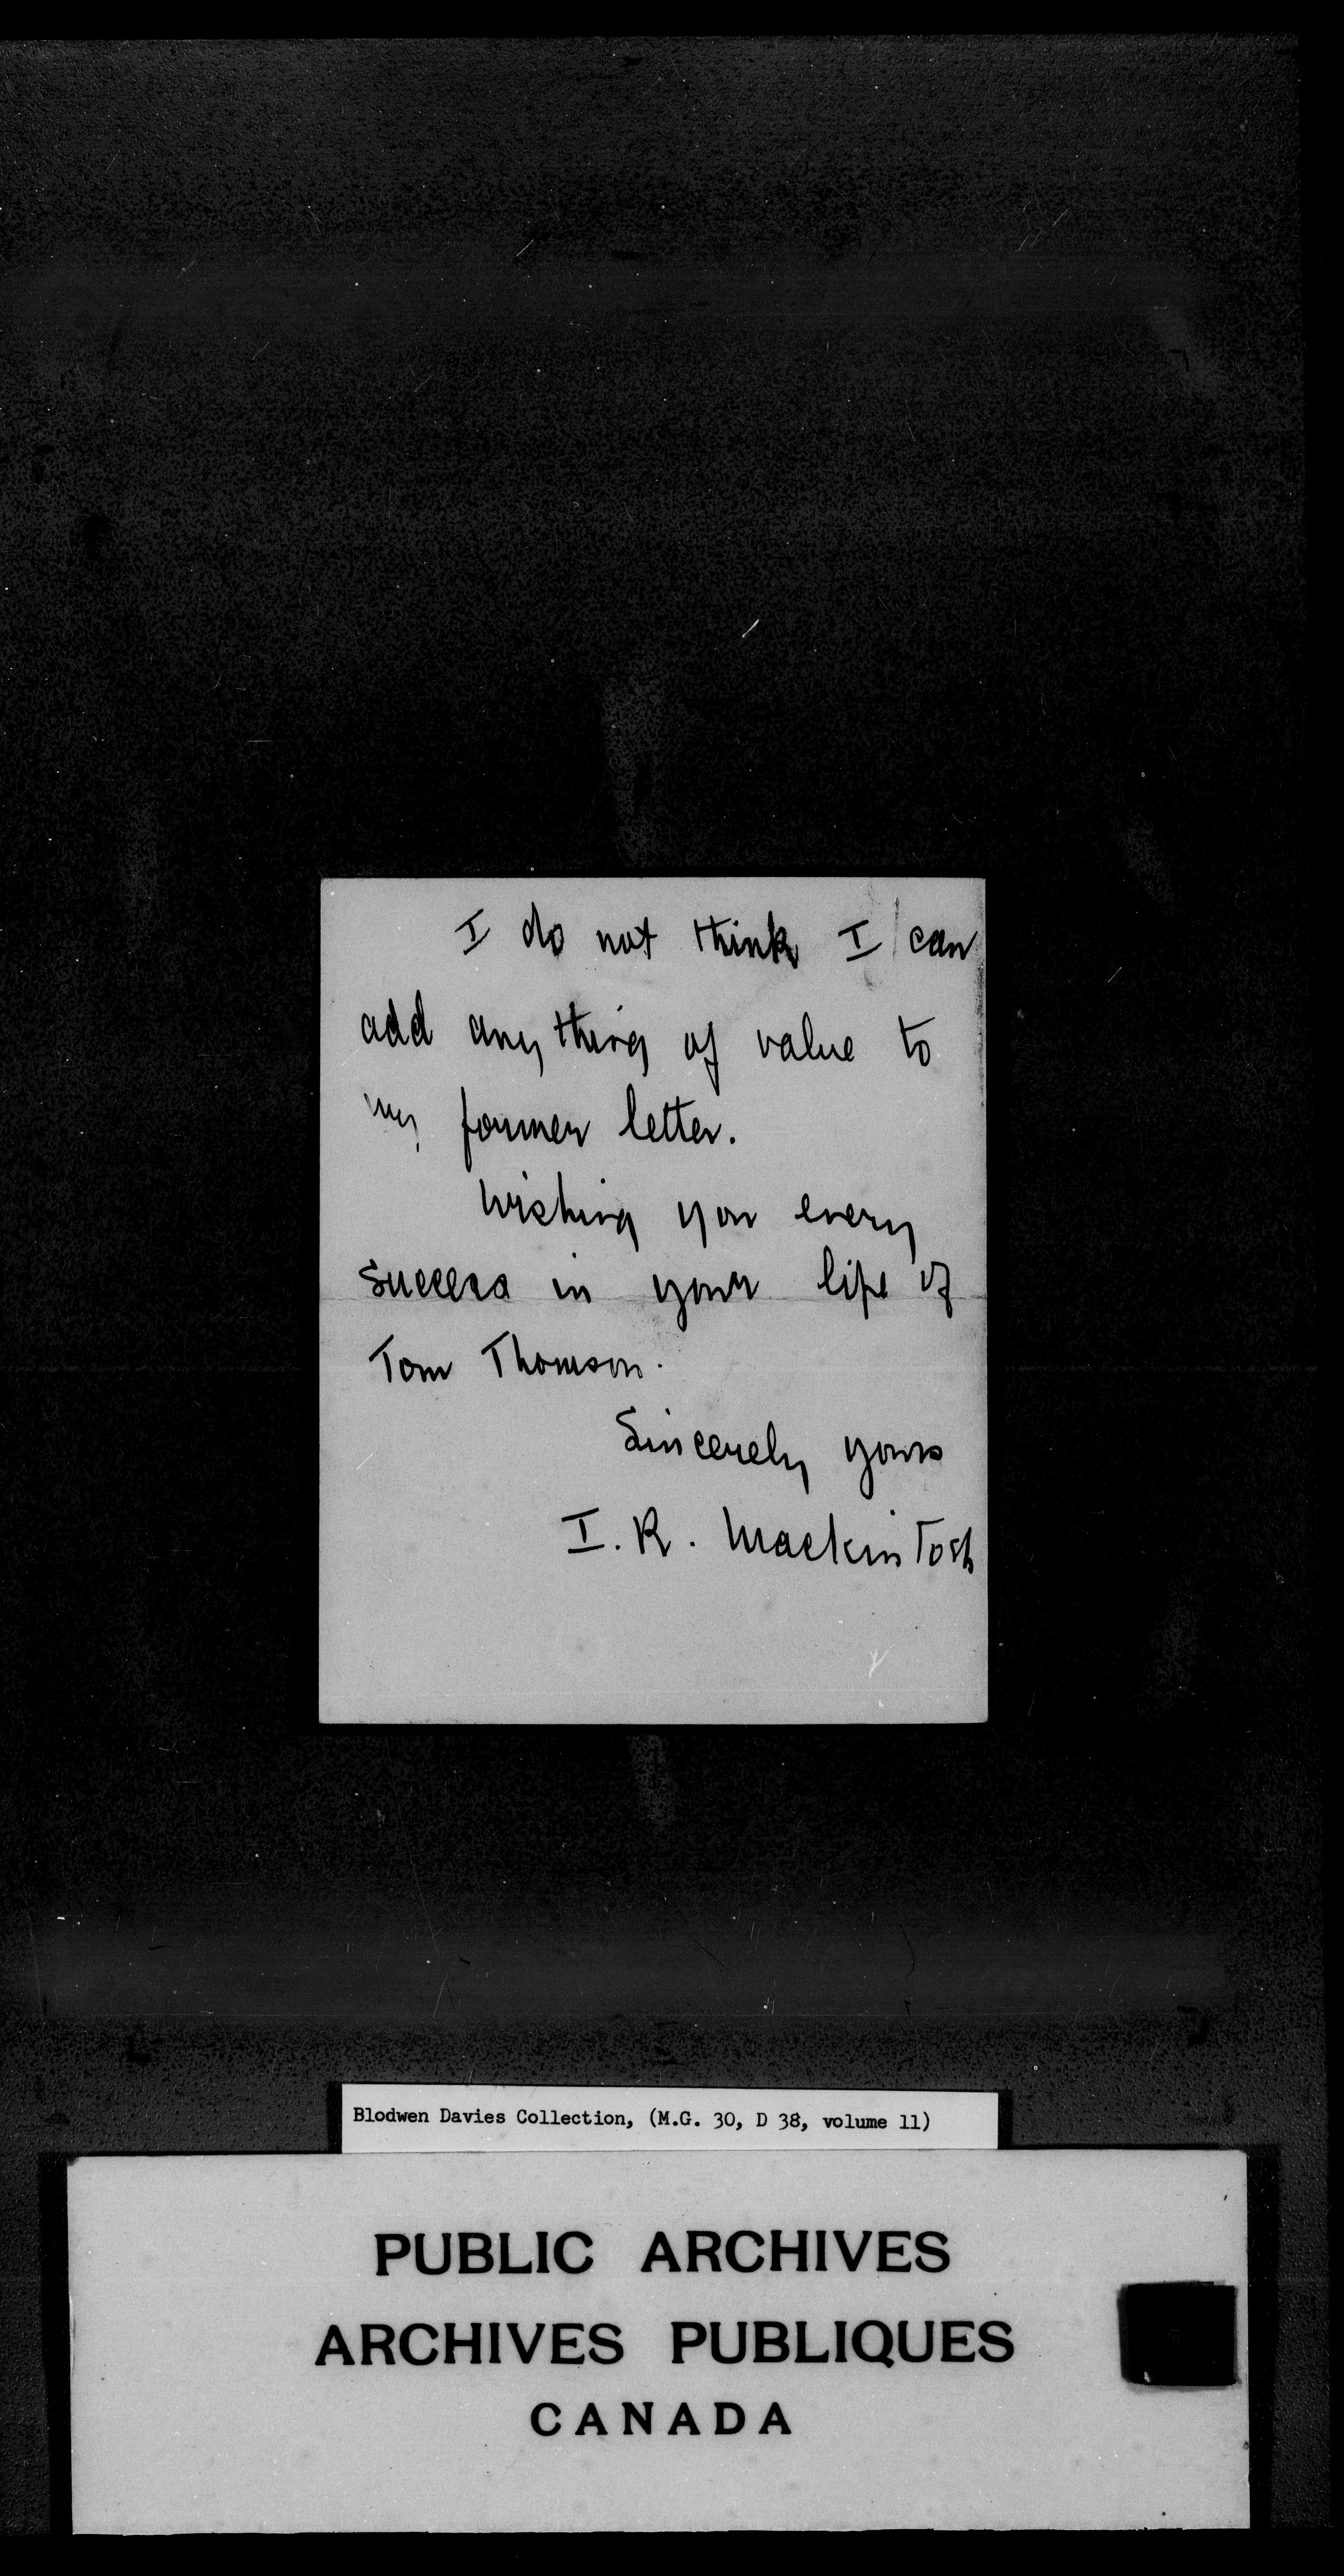 I do not think I can
add anything of value to
my former letter.
Wishing you every
success in your life of
Tom Thomson.
Sincerely yours
I. R. Mackintosh
Blodwen Davies Collection, (M.G. 30, D 38, volume 11)
PUBLIC ARCHIVES
ARCHIVES PUBLIQUES
CANADA